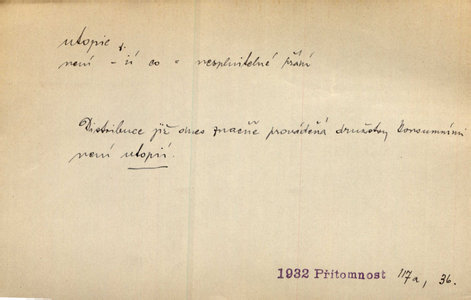 utopie
není -ií co = nesplnitelné přání
Distribuce již dnes značně prováděná družstvy konsumními
není utopií.
1932 Přítomnost 117a, 36.